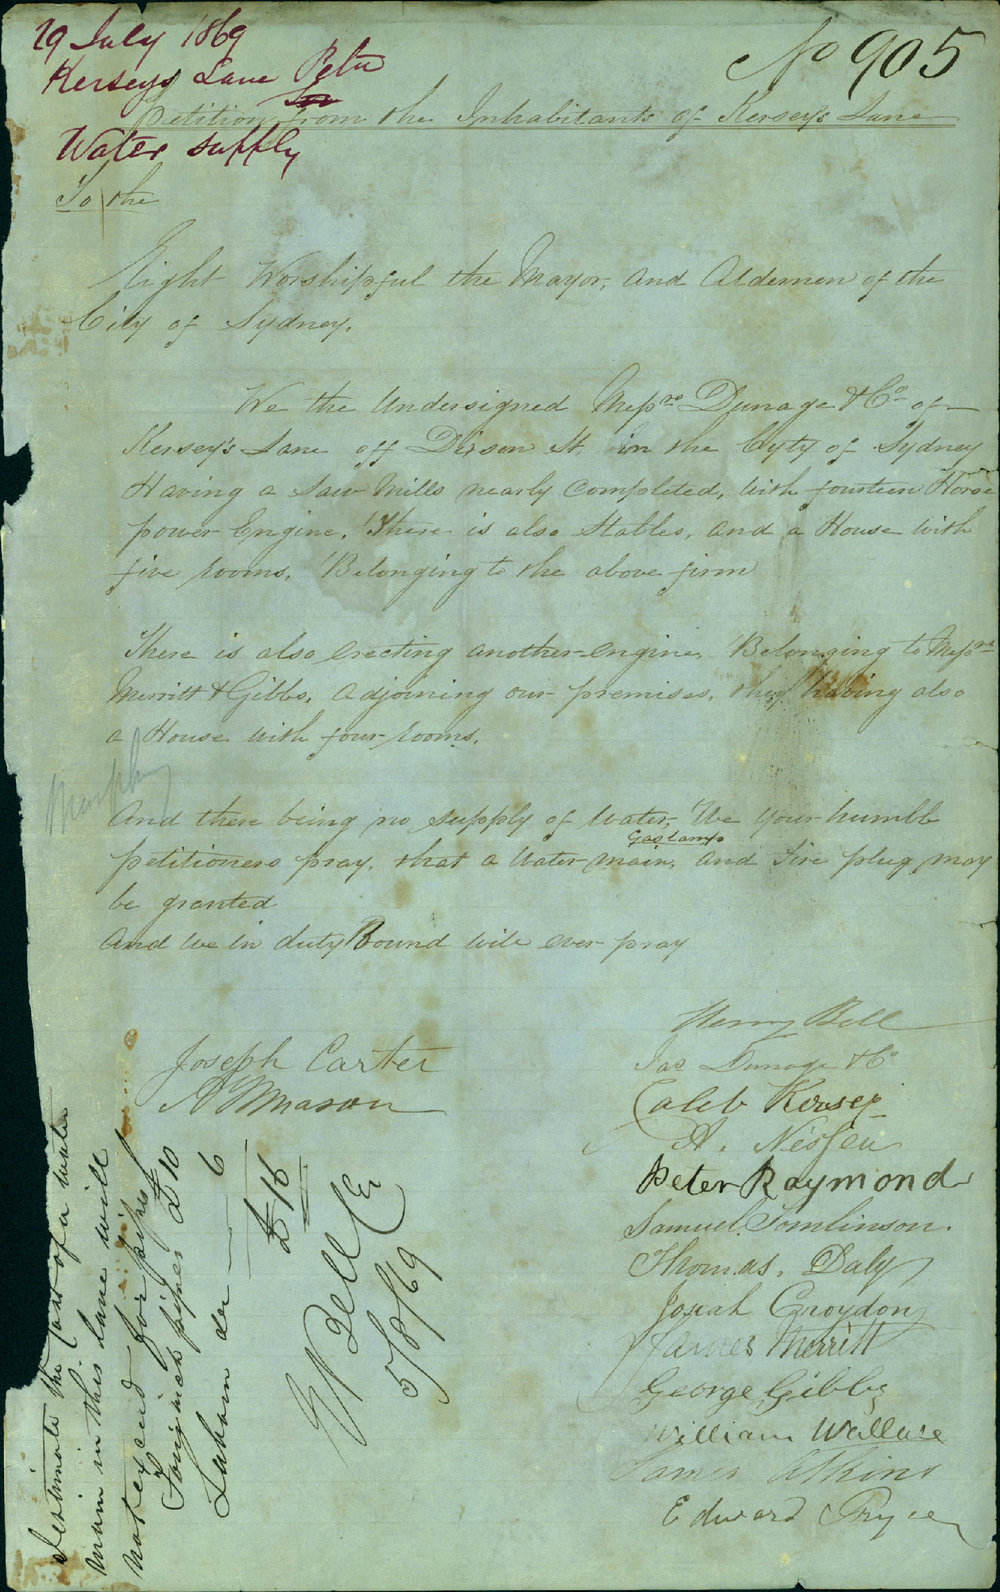 29 July 1869
No 905
Kerseys Lane Petn
Petition from the Inhabitants of Kersey's Lane
Water supply
To the
Right Worshipful the Mayor, and Aldermen of the
City of Sydney.
We the Undersigned Messrs Dunage & Co of
Kersey's Lane off Dixson St. in the Cyty of Sydney
Having a Saw Mills nearly Completed, with fourteen Horse
power Engine. There is also Stables, and a House with
five rooms, Belonging to the above firm
There is also erecting another engine, Belonging to Messrs
Merritt & Gibbs, adjoining our premises. they having also
a House with four rooms.
Murphy
And there being no supply of water, We your humble
Gas lamp
petitioners pray, that a Water main, and Fire plug may
be granted
And we in duty Bound will ever pray
Henry Bell
Joseph Carter
Jas Dunage & Co
A Mason
Caleb Kersey
A. Nessen
Peter Raymond
Samuel Tomlinson.
Thomas. Daly
Josiah Croydon
James Merritt
George Gibbs
William Wallace
James Atkins
Edward Pryce
Estimate the Cost of a water
main in this lane will
not exceed for pipes
Four inch pipes £10
Labour do 6
£16
W Bell CE
5/8/69